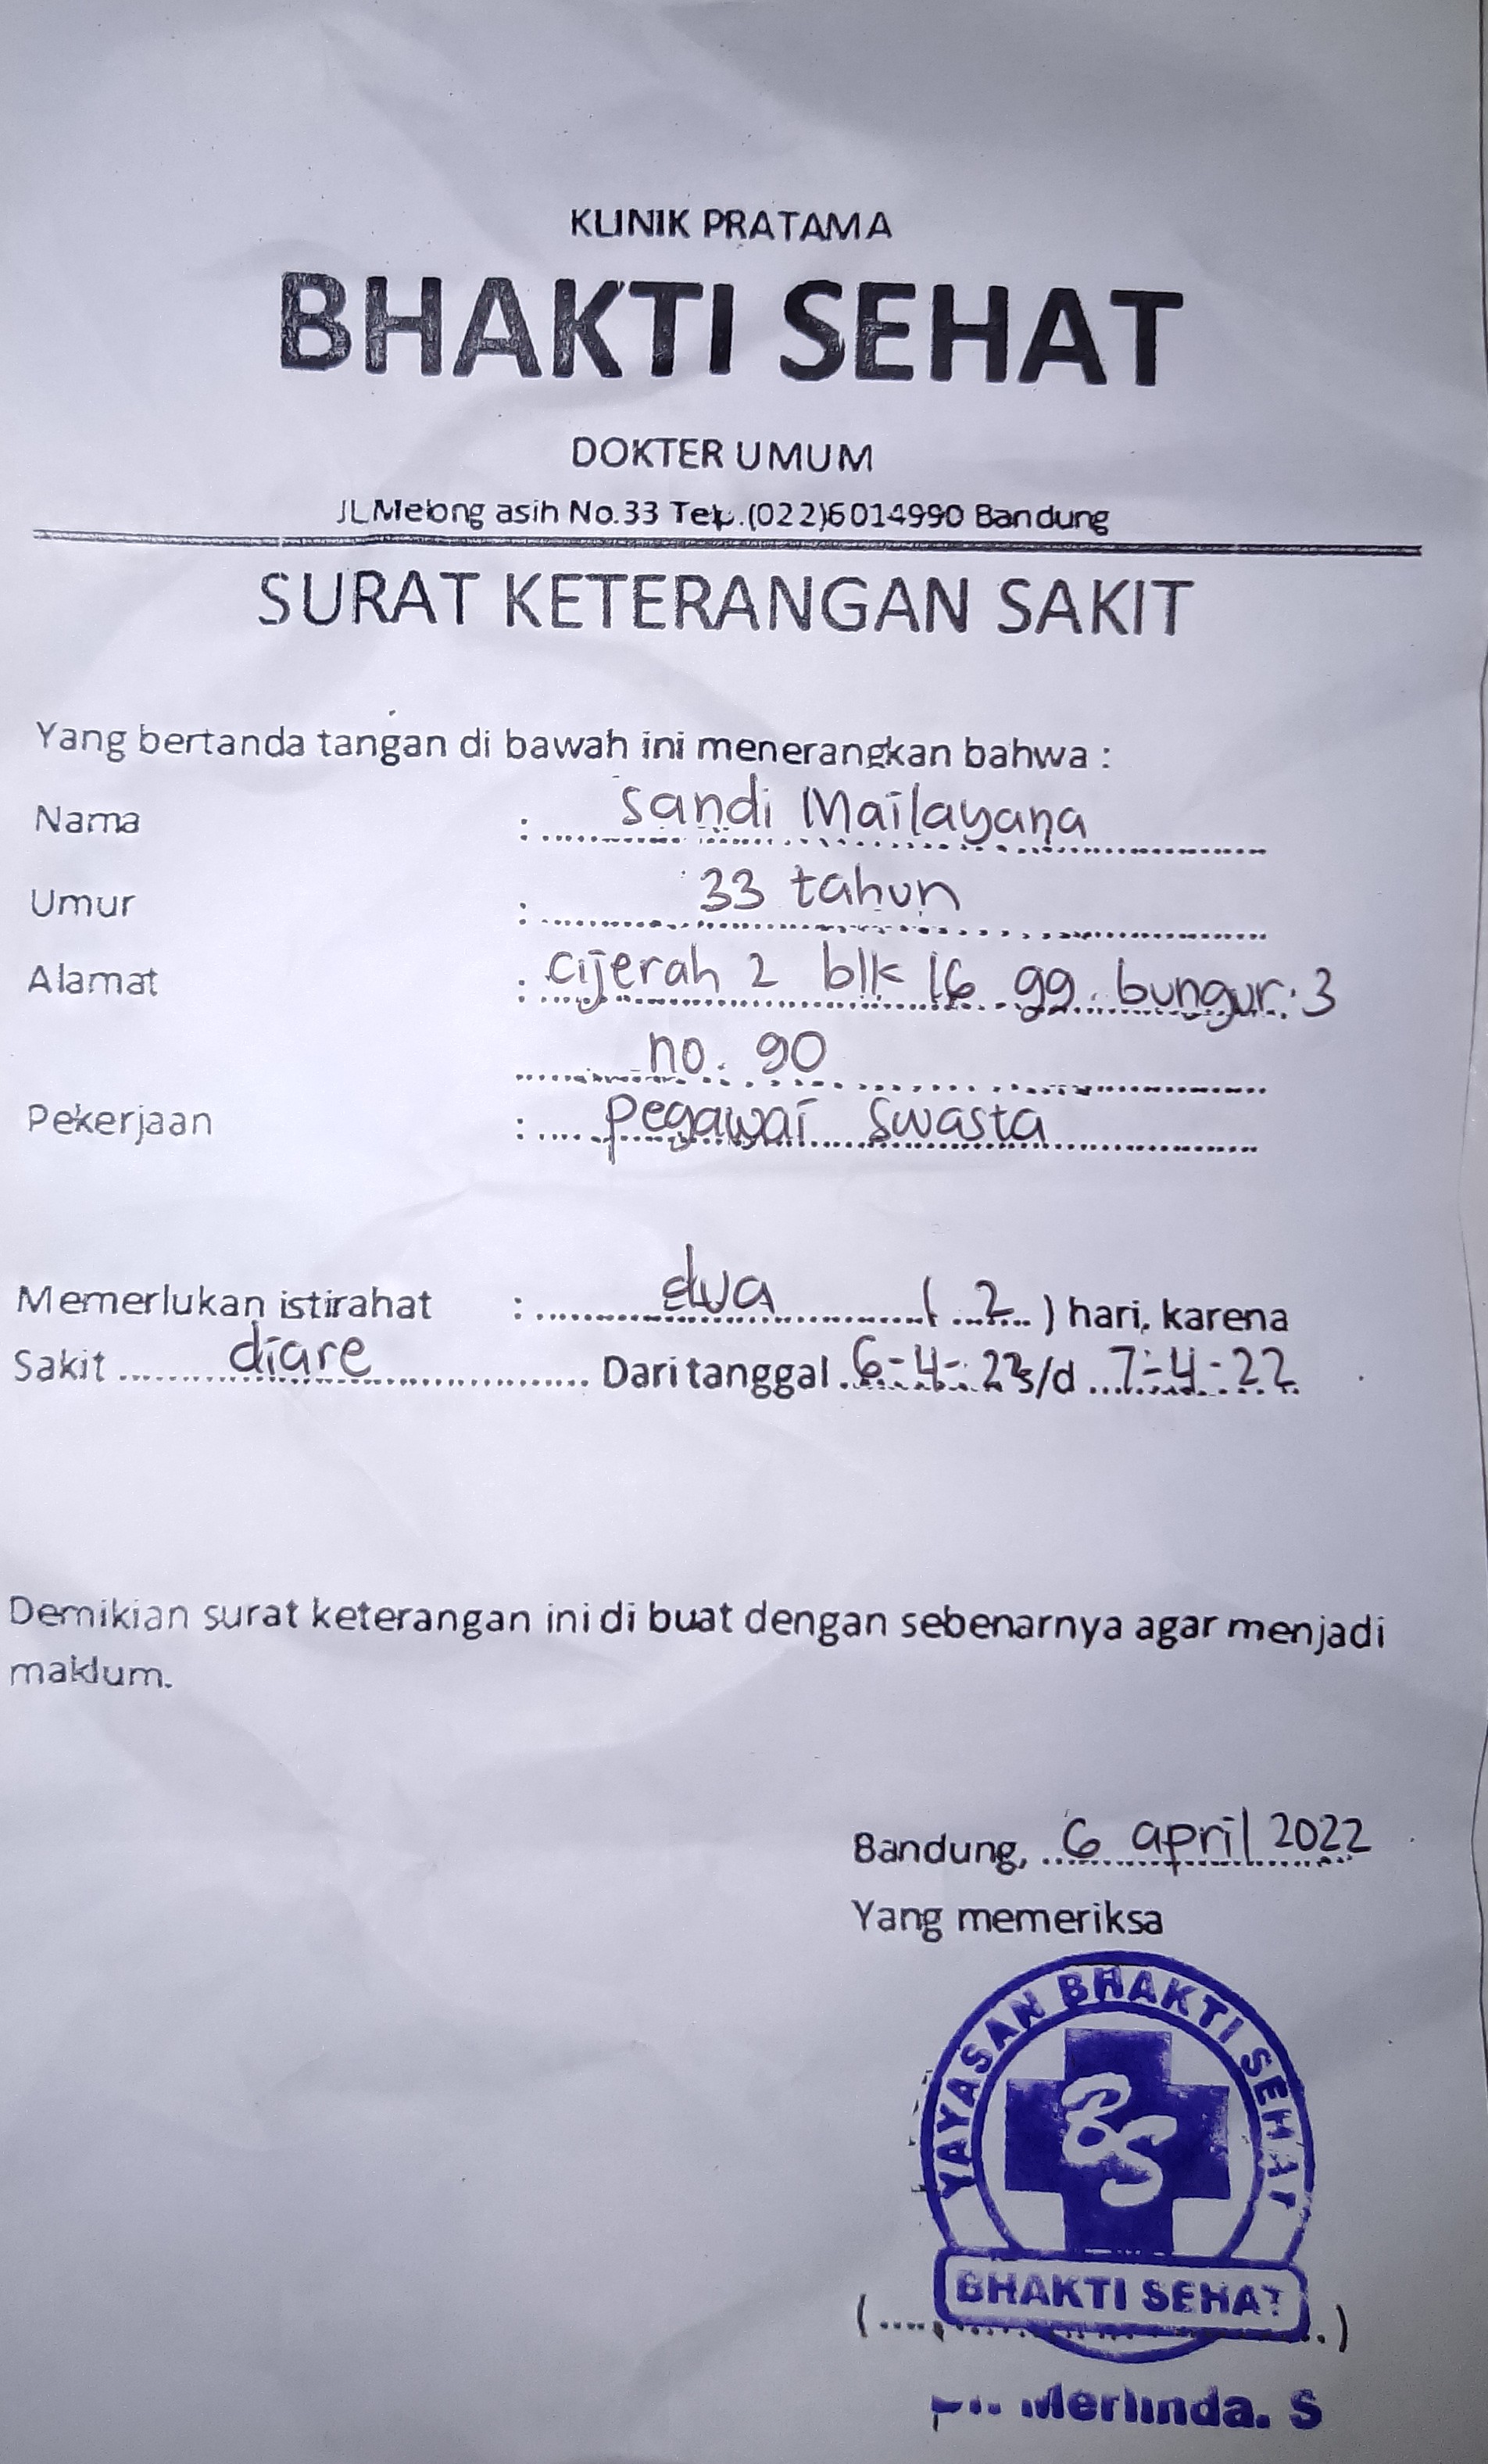 KLINIK PRATAMA
BHAKTI SEHAT
DOKTER UMUM
JL.Melong asih No.33 Telp.(022)6014990 Bandung
SURAT KETERANGAN SAKIT
Yang bertanda tangan di bawah ini menerangkan bahwa :
Nama : Sandi Mailayana
Umur : 33 tahun
Alamat : Cijerah 2 blk 16 gg. bungur. 3
no. 90
Pekerjaan : Pegawai Swasta
Memerlukan istirahat : dua ( 2 ) hari, karena
Sakit diare Dari tanggal 6-4-22 s/d 7-4-22
Demikian surat keterangan ini di buat dengan sebenarnya agar menjadi
maklum.
Bandung, 6 april 2022
Yang memeriksa
YAYASAN BHAKTI SEHAT
BS
BHAKTI SEHAT
(....................)
Merlinda. S